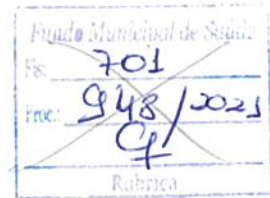 Fundo Municipal de Saúde
Fls: 701
Proc.: 948/2021
Rubrica